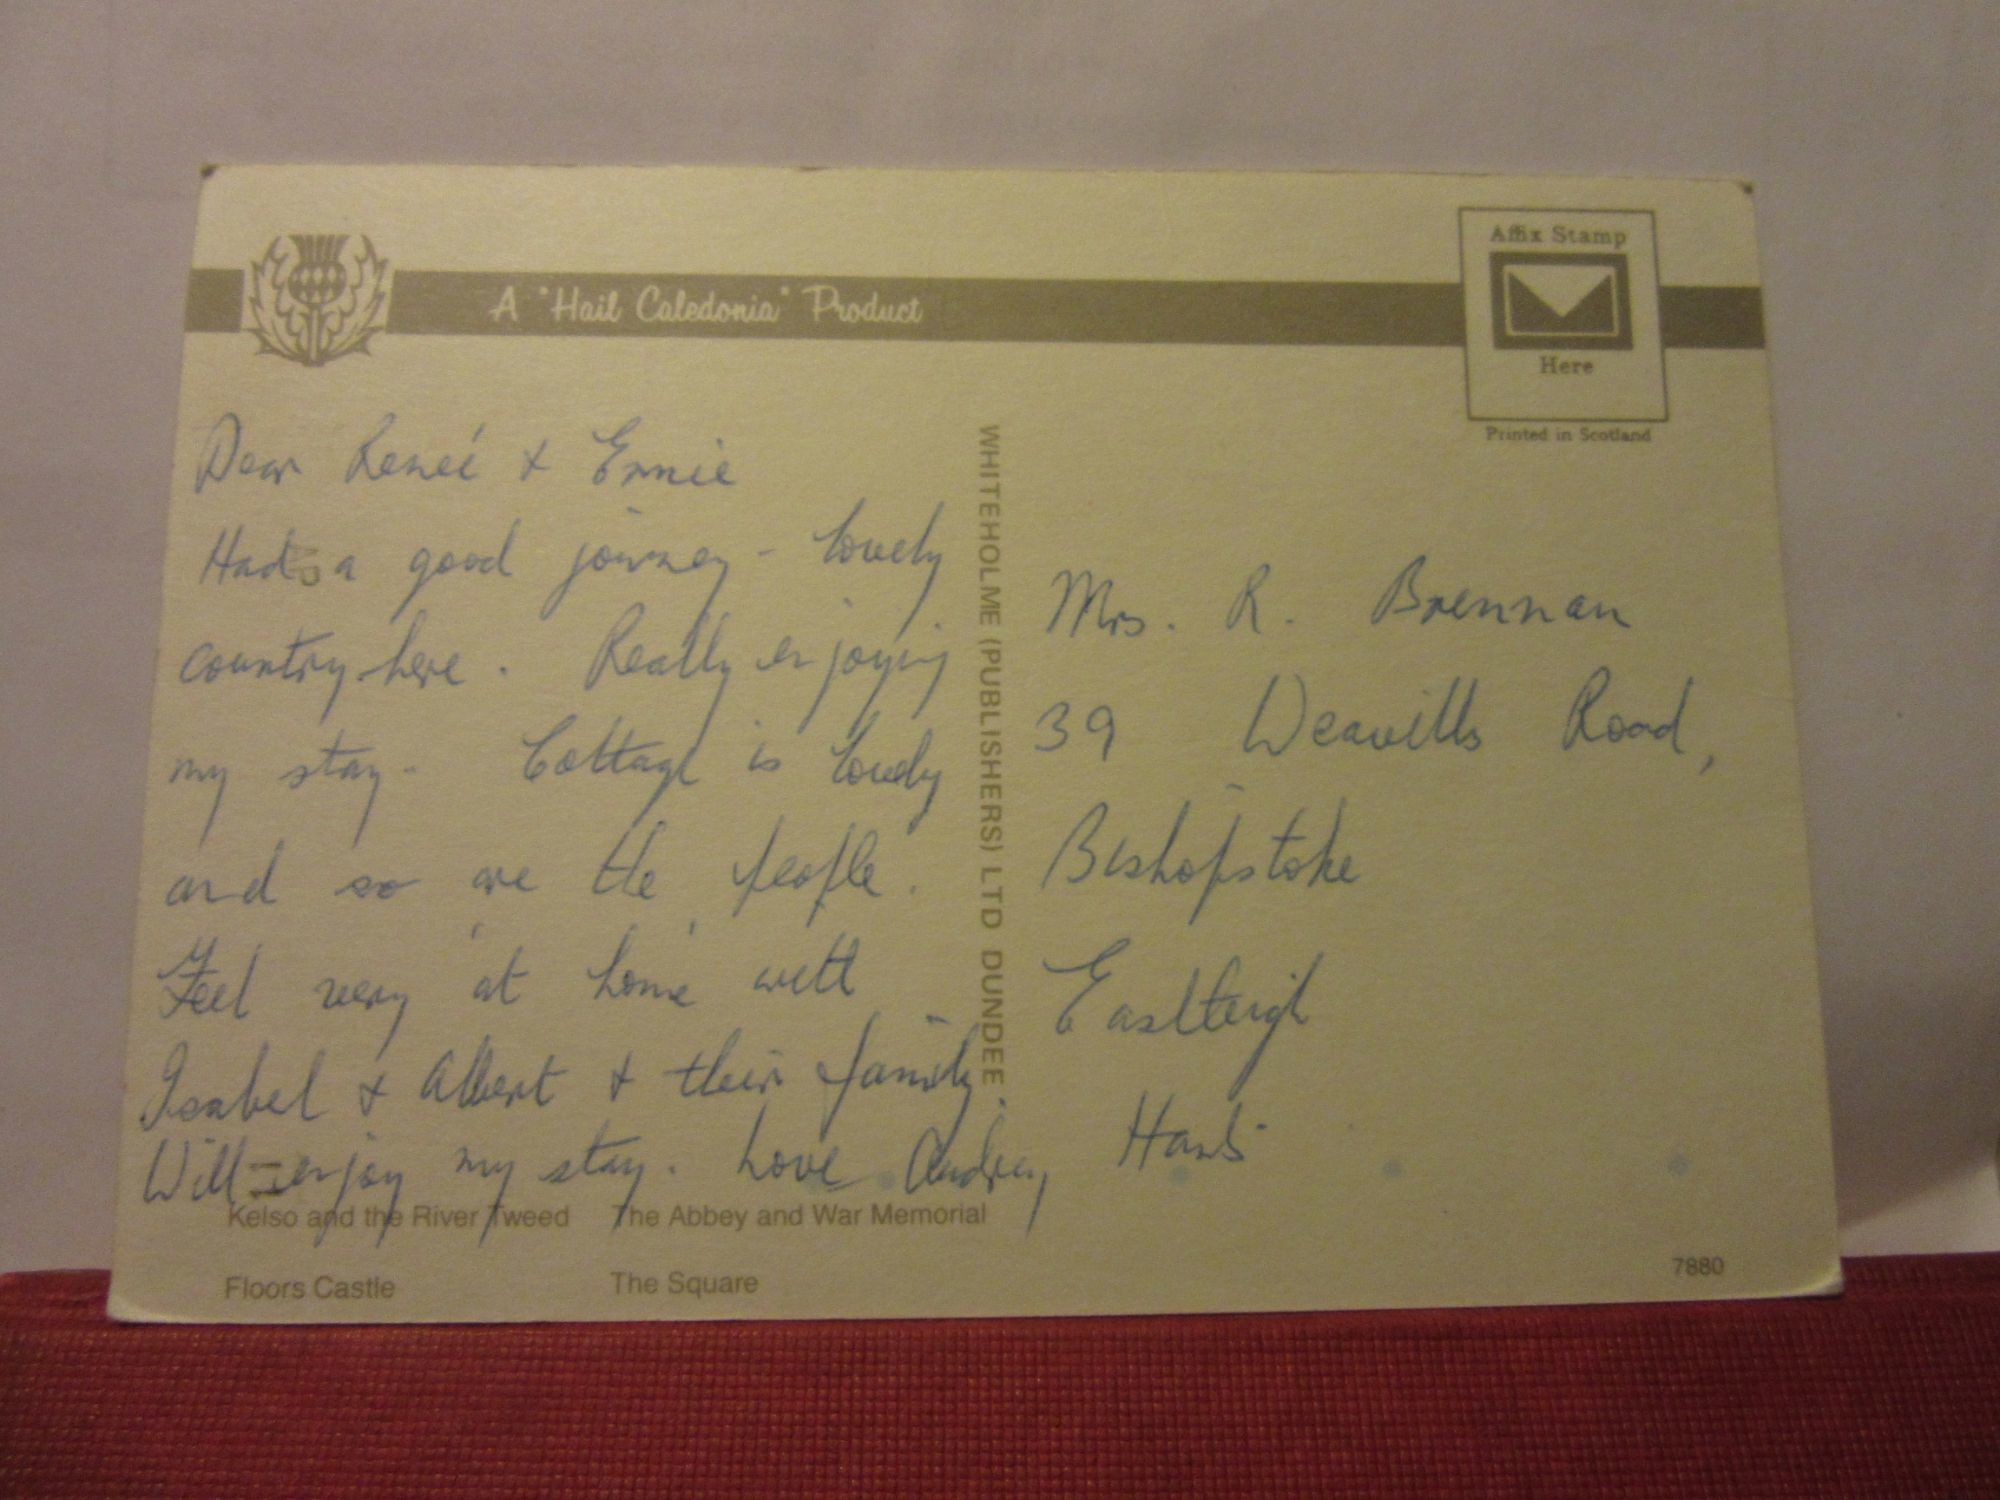 A "Hail Caledonia" Product
Affix Stamp
Here
Printed in Scotland
Dear Reneé + Ernie
Had a good journey - lovely
country here. Really enjoying
my stay. Cottage is lovely
and so are the people.
Feel very at home with
Isabel + Albert + their family.
Will enjoy my stay. Love Audrey
WHITEHOLME (PUBLISHERS) LTD DUNDEE
Mrs. R. Brennan
39 Weavills Road,
Bishopstoke
Eastleigh
Hants
Kelso and the River Tweed The Abbey and War Memorial
Floors Castle The Square
7880